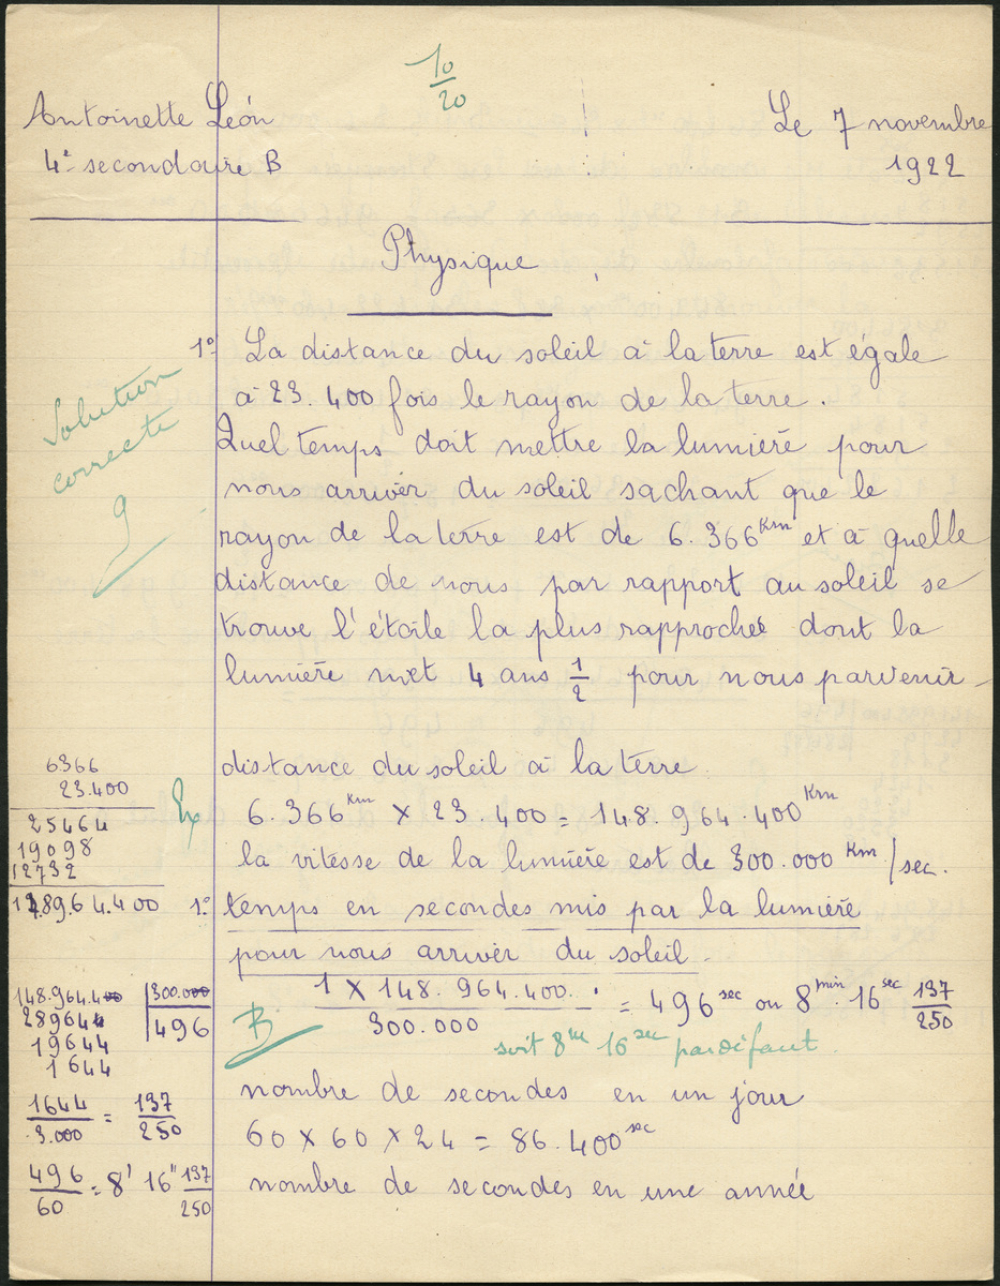 10
20
Antoinette León
Le 7 novembre
4e secondaire B
1922
Physique
1° La distance du soleil à la terre est égale
à 23.400 fois le rayon de la terre.
Quel temps doit mettre la lumière pour
nous arriver du soleil sachant que le
rayon de la terre est de 6.366 Km et à quelle
distance de nous par rapport au soleil se
trouve l'étoile la plus rapprochée dont la
lumière met 4 ans 1/2 pour nous parvenir
Solution
correcte
9
distance du soleil à la terre
6.366 Km × 23.400 = 148.964.400 Km
la vitesse de la lumière est de 300.000 Km/sec.
1° temps en secondes mis par la lumière
pour nous arriver du soleil.
1 × 148.964.400 / 300.000 = 496 sec ou 8 min 16 sec 137/250
B
soit 8m 16 sec par défaut.
nombre de secondes en un jour
60 × 60 × 24 = 86.400 sec
nombre de secondes en une année
6366
23.400
25464
19098
12732
148.964.400 | 300.000
289644 | 496
19644
1644
1644/3.000 = 137/250
496/60 = 8' 16" 137/250